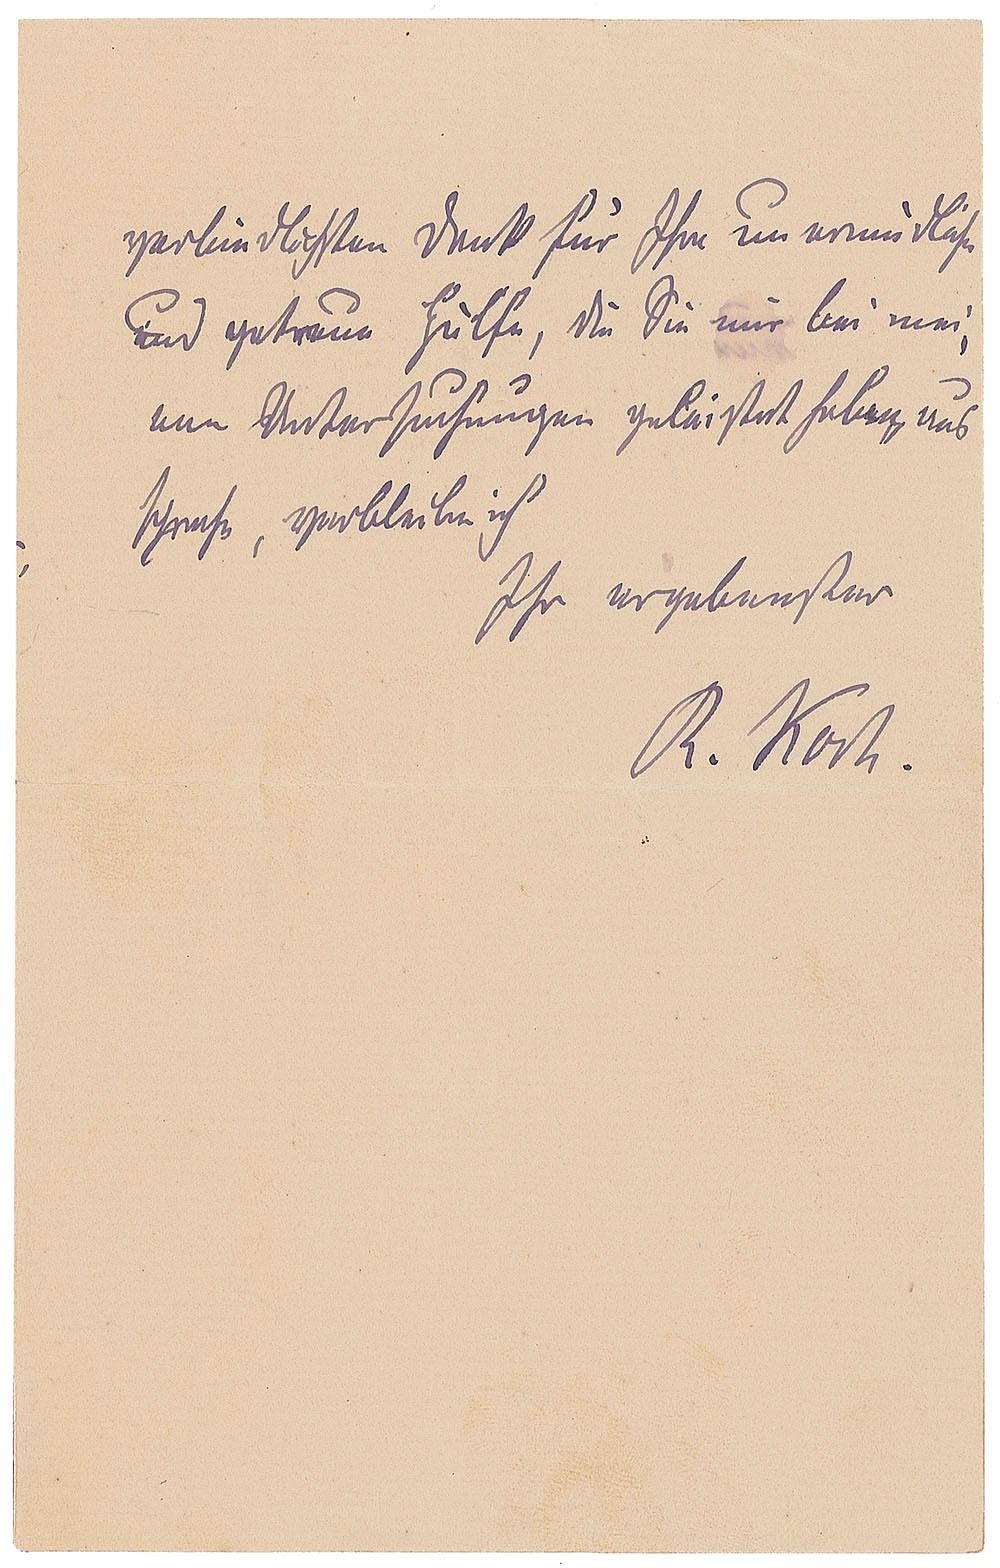 verbindlichsten Dank für Ihre unermüdliche
und getreue Hülfe, die Sie mir bei mei,
nen Untersuchungen geleistet haben, aus
spreche, verbleibe ich
Ihr ergebenster
R. Koch.